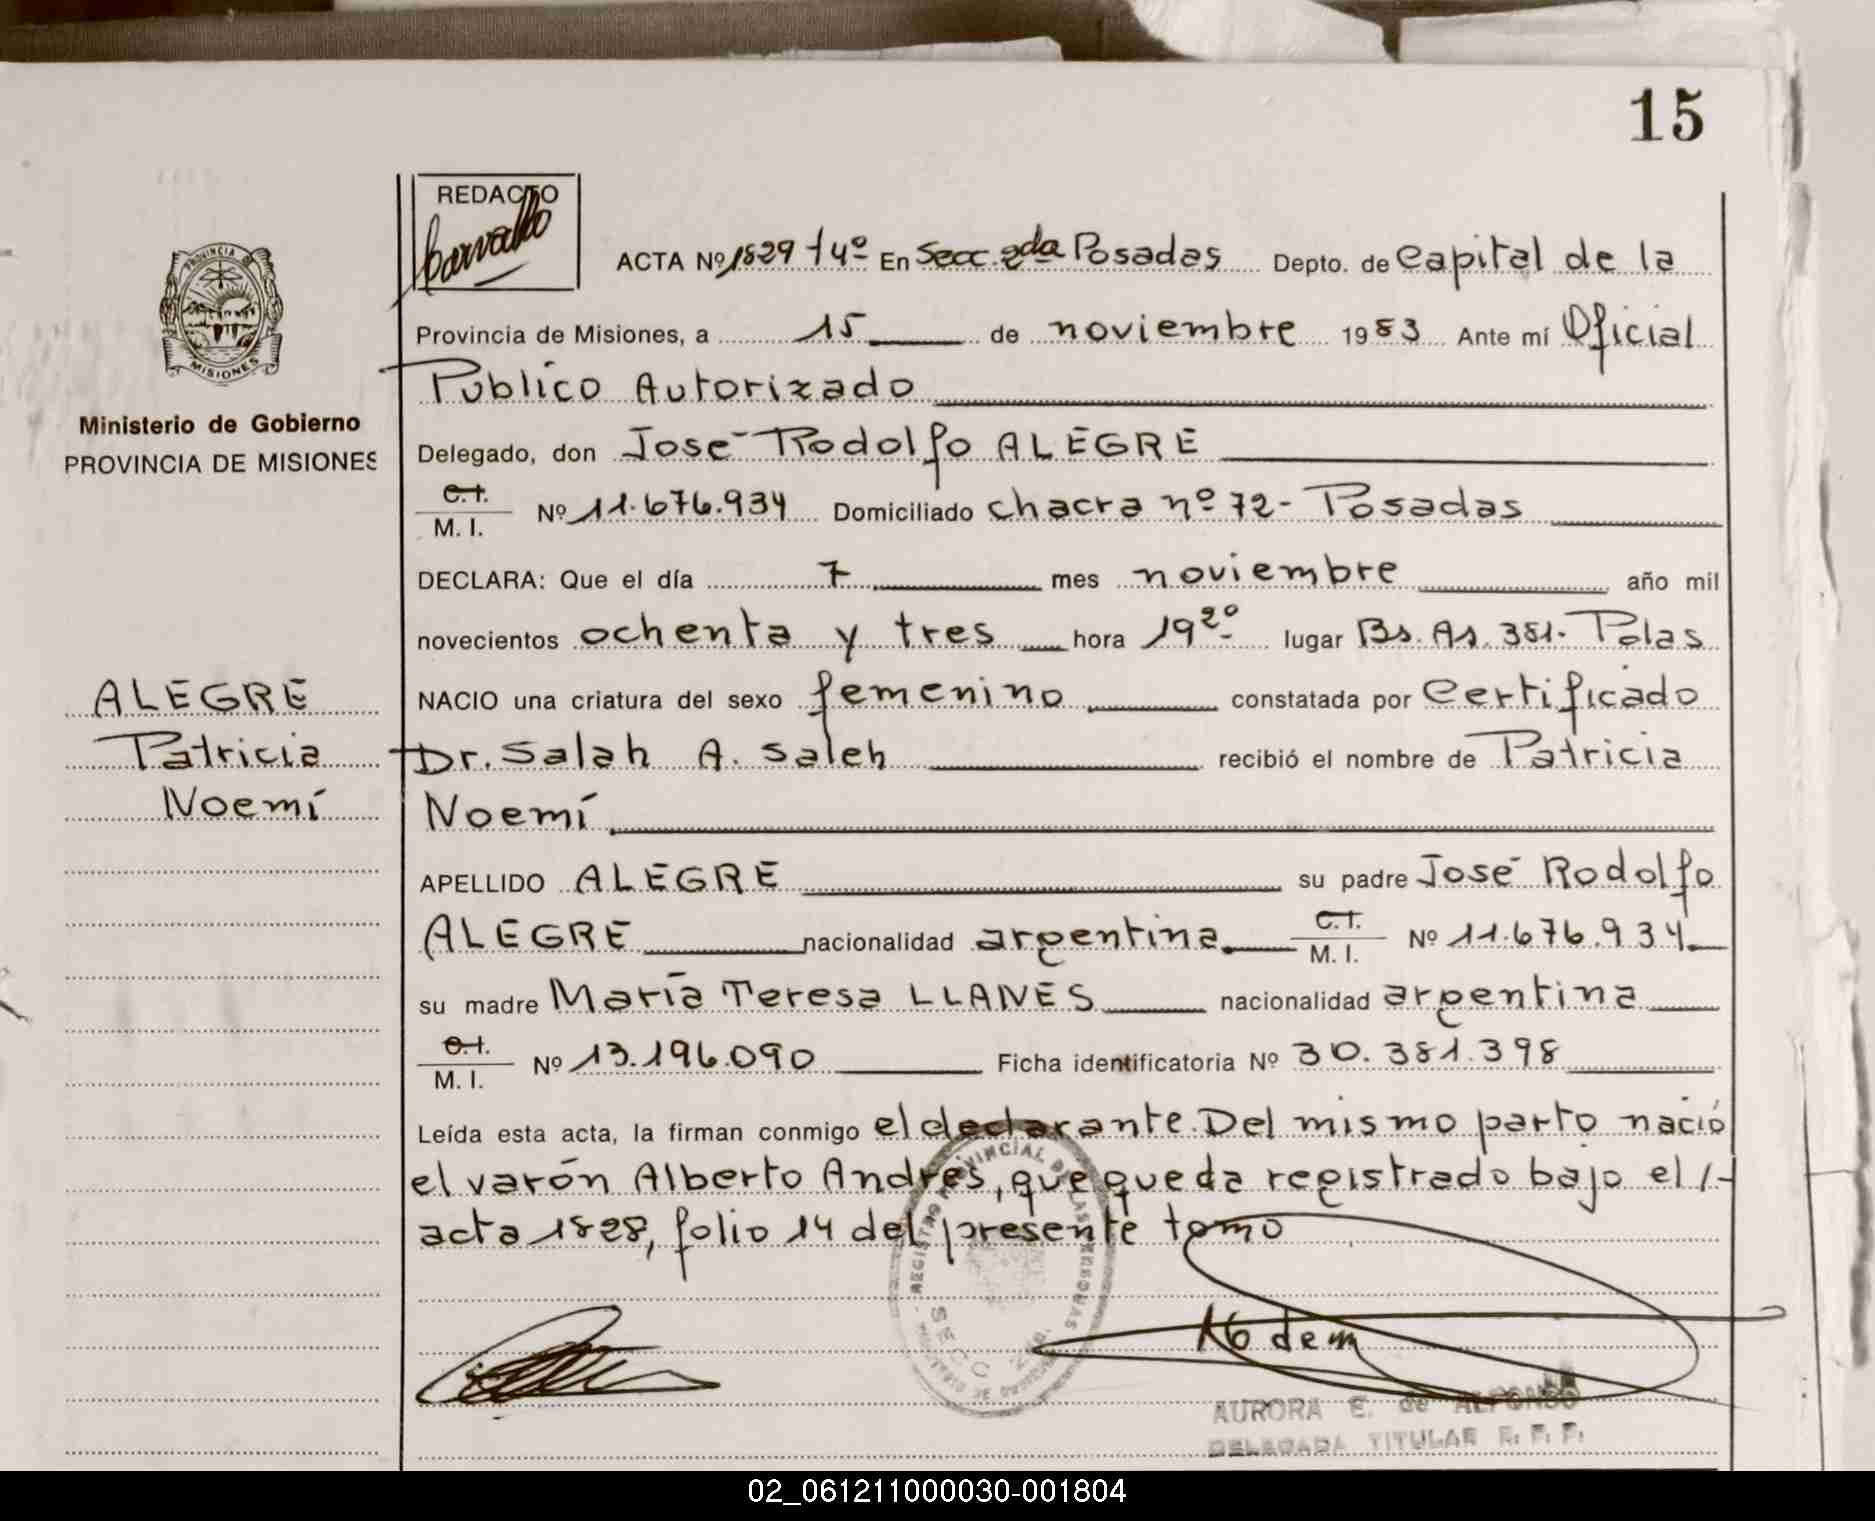 15
REDACTO
Carvallo
ACTA Nº 1829 t4º En Secc. 2da Posadas Depto. de Capital de la
Provincia de Misiones, a 15 de noviembre 1983 Ante mí Oficial
Publico Autorizado
PROVINCIA DE
MISIONES
Ministerio de Gobierno
PROVINCIA DE MISIONES
Delegado, don José Rodolfo ALEGRE
C.I.
M. I. Nº 11.676.934 Domiciliado chacra nº 72- Posadas
DECLARA: Que el día 7 mes noviembre año mil
novecientos ochenta y tres hora 19 20 lugar Bs. As. 381- Pdas
ALEGRE
Patricia
Noemí
NACIO una criatura del sexo femenino constatada por Certificado
Dr. Salah A. Saleh recibió el nombre de Patricia
Noemí
APELLIDO ALEGRE su padre José Rodolfo
ALEGRE nacionalidad argentina C.I.
M. I. Nº 11.676.934
su madre María Teresa LLANES nacionalidad argentina
C.I.
M. I. Nº 13.196.090 Ficha identificatoria Nº 30.381.398
Leída esta acta, la firman conmigo el declarante. Del mismo parto nació
el varón Alberto Andrés, que queda registrado bajo el /-
acta 1828, folio 14 del presente tomo
REGISTRO PROVINCIAL DE LAS PERSONAS
SECC 2
AURORA E. de ALFONSO
DELEGADA TITULAR R. P. P.
02_061211000030-001804